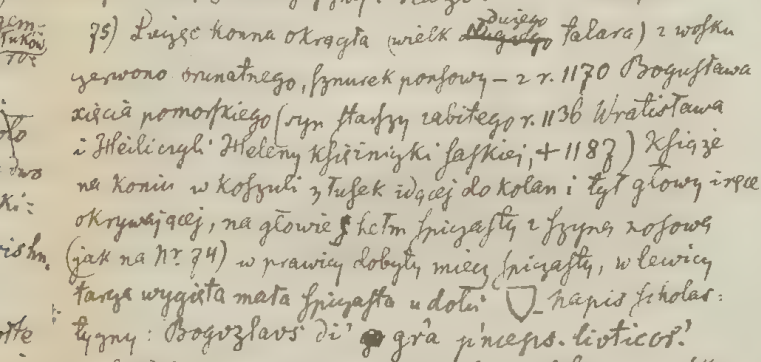 75) Pieczęć konna okrągła (wielk. Dużego talara) z wosku
czerwono brunatnego, sznurek ponsowy – z r. 1170 Bogusława
xięcia pomorskiego (syn starszy zabitego r. 1136 Wratisława
i Heili czyli Heleny Księżniczki saskiej, + 1187) Książe
na koniu w koszuli z łusek idącej do kolan i tył głowy i ręce
okrywającej, na głowie hełm spiczasty z szyną nosową
(jak na Nr. 74) w prawicy dobyty miecz spiczasty, w lewicy
tarcza wygięta mała spiczasta u dołu – Napis scholas:
tyczny: Bogvzlavs di' gr̃a p'nceps. livticor'.